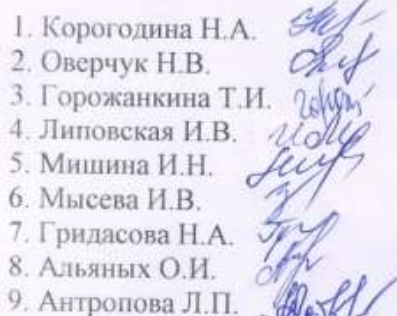 1. Корогодина Н.А.
2. Оверчук Н.В.
3. Горожанкина Т.И.
4. Липовская И.В.
5. Мишина И.Н.
6. Мысева И.В.
7. Гридасова Н.А.
8. Альяных О.И.
9. Антропова Л.П.